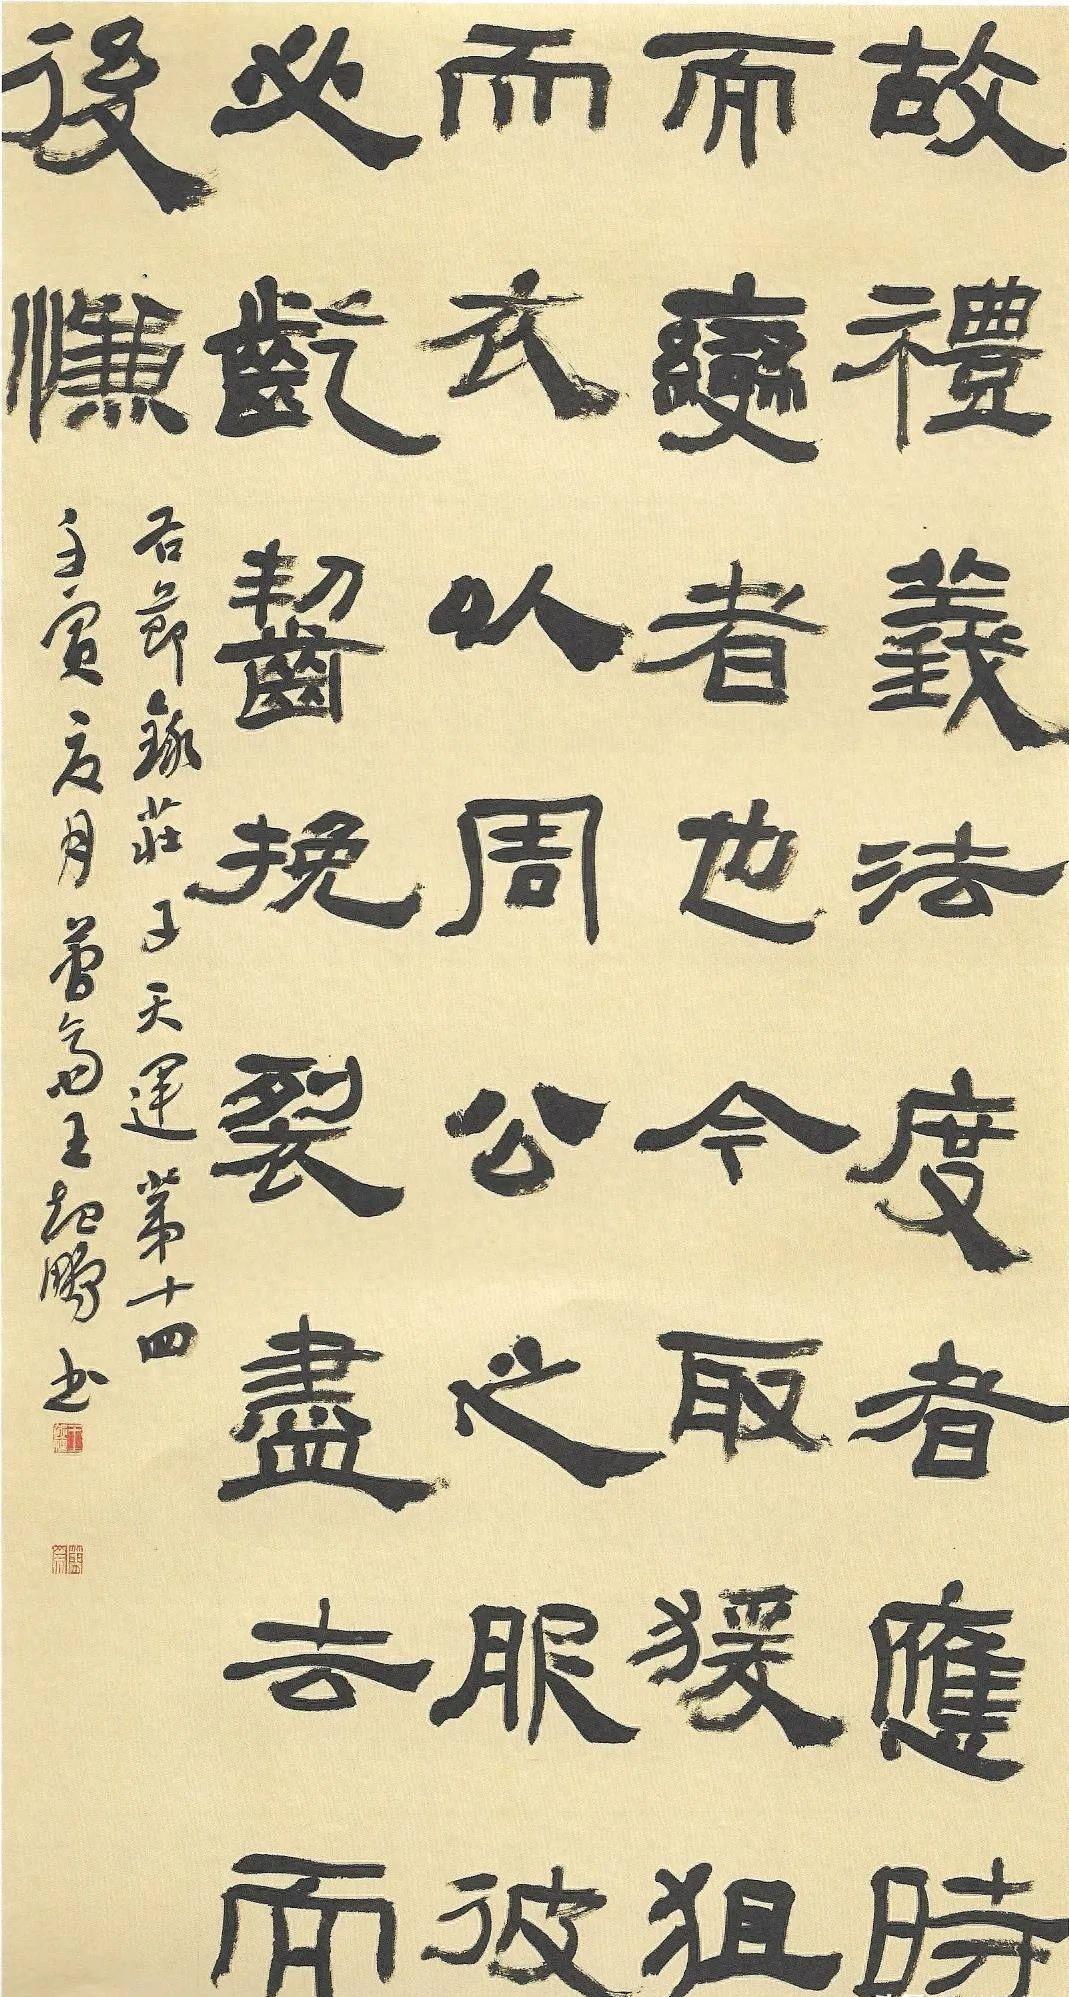 故禮義法度者應時
而變者也今取猨狙
而衣以周公之服彼
必齕齧挽裂盡去而
後慊
右節錄莊子天運第十四
壬寅夏月王鵬书